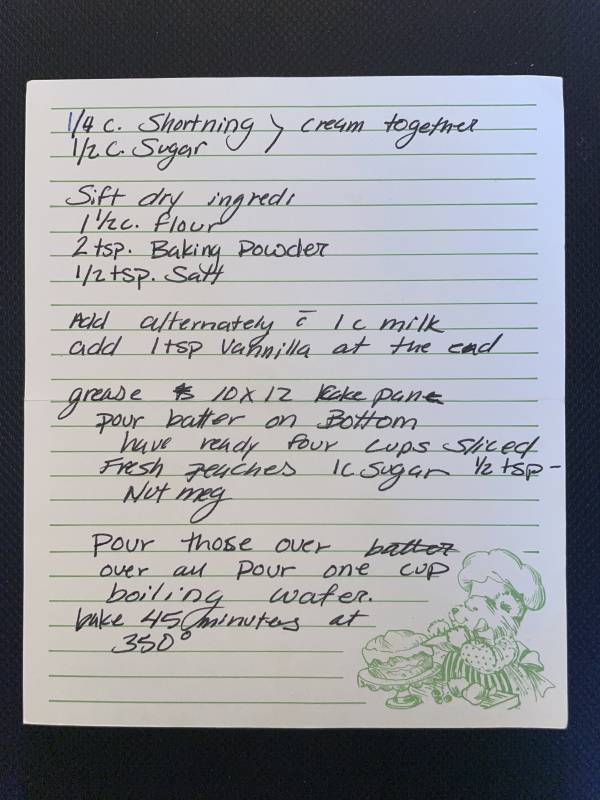 1/4 c. Shortning } cream together
1/2 c. Sugar
Sift dry ingredi
1 1/2 c. flour
2 tsp. Baking Powder
1/2 tsp. Salt
Add alternately c̄ 1 c milk
add 1 tsp Vannilla at the end
grease 10 x 12 cake pan
pour batter on Bottom
have ready four cups sliced
Fresh peaches 1c sugar 1/2 tsp -
Nut meg
Pour those over batter
over all pour one cup
boiling water.
bake 45 minutes at
350°